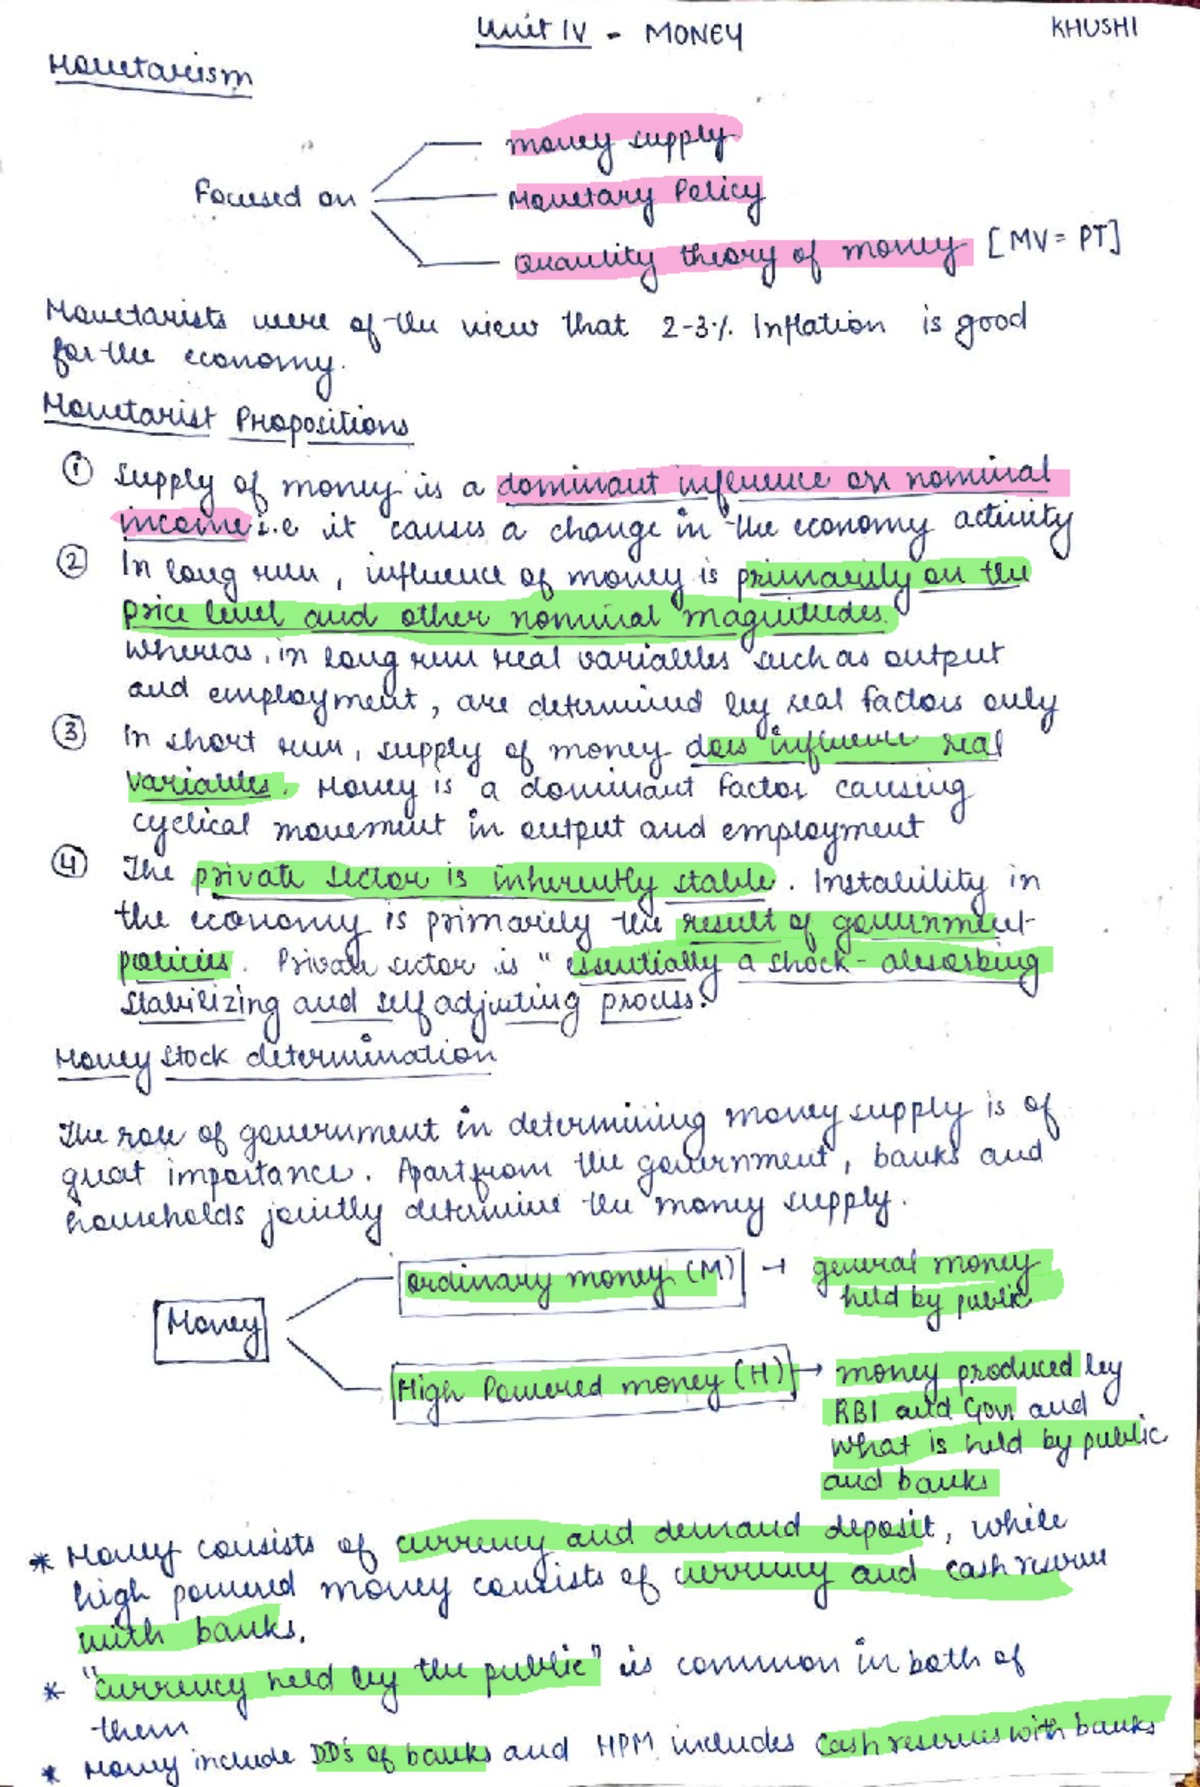 Unit IV - MONEY
KHUSHI
Monetarism
Focused on
money supply
Monetary Policy
Quantity theory of money [MV = PT]
Monetarists were of the view that 2-3% Inflation is good
for the economy.
Monetarist Propositions
① Supply of money is a dominant influence on nominal
income i.e it causes a change in the economy activity
② In long run, influence of money is primarily on the
price level and other nominal magnitudes.
whereas, in long run real variables such as output
and employment, are determined by real factors only
③ In short run, supply of money does influence real
variables. Money is a dominant factor causing
cyclical movement in output and employment
④ The private sector is inherently stable. Instability in
the economy is primarily the result of government
policies. Private sector is "essentially a shock-absorbing
stabilizing and self adjusting process."
Money stock determination
The role of government in determining money supply is of
great importance. Apart from the government, banks and
households jointly determine the money supply.
Money
ordinary money (M) → general money
held by public
High Powered money (H) → money produced by
RBI and Govt and
what is held by public
and banks
* Money consists of currency and demand deposit, while
high powered money consists of currency and cash reserve
with banks.
* "currency held by the public" is common in both of
them
* Money include DD's of banks and HPM includes cash reserves with banks